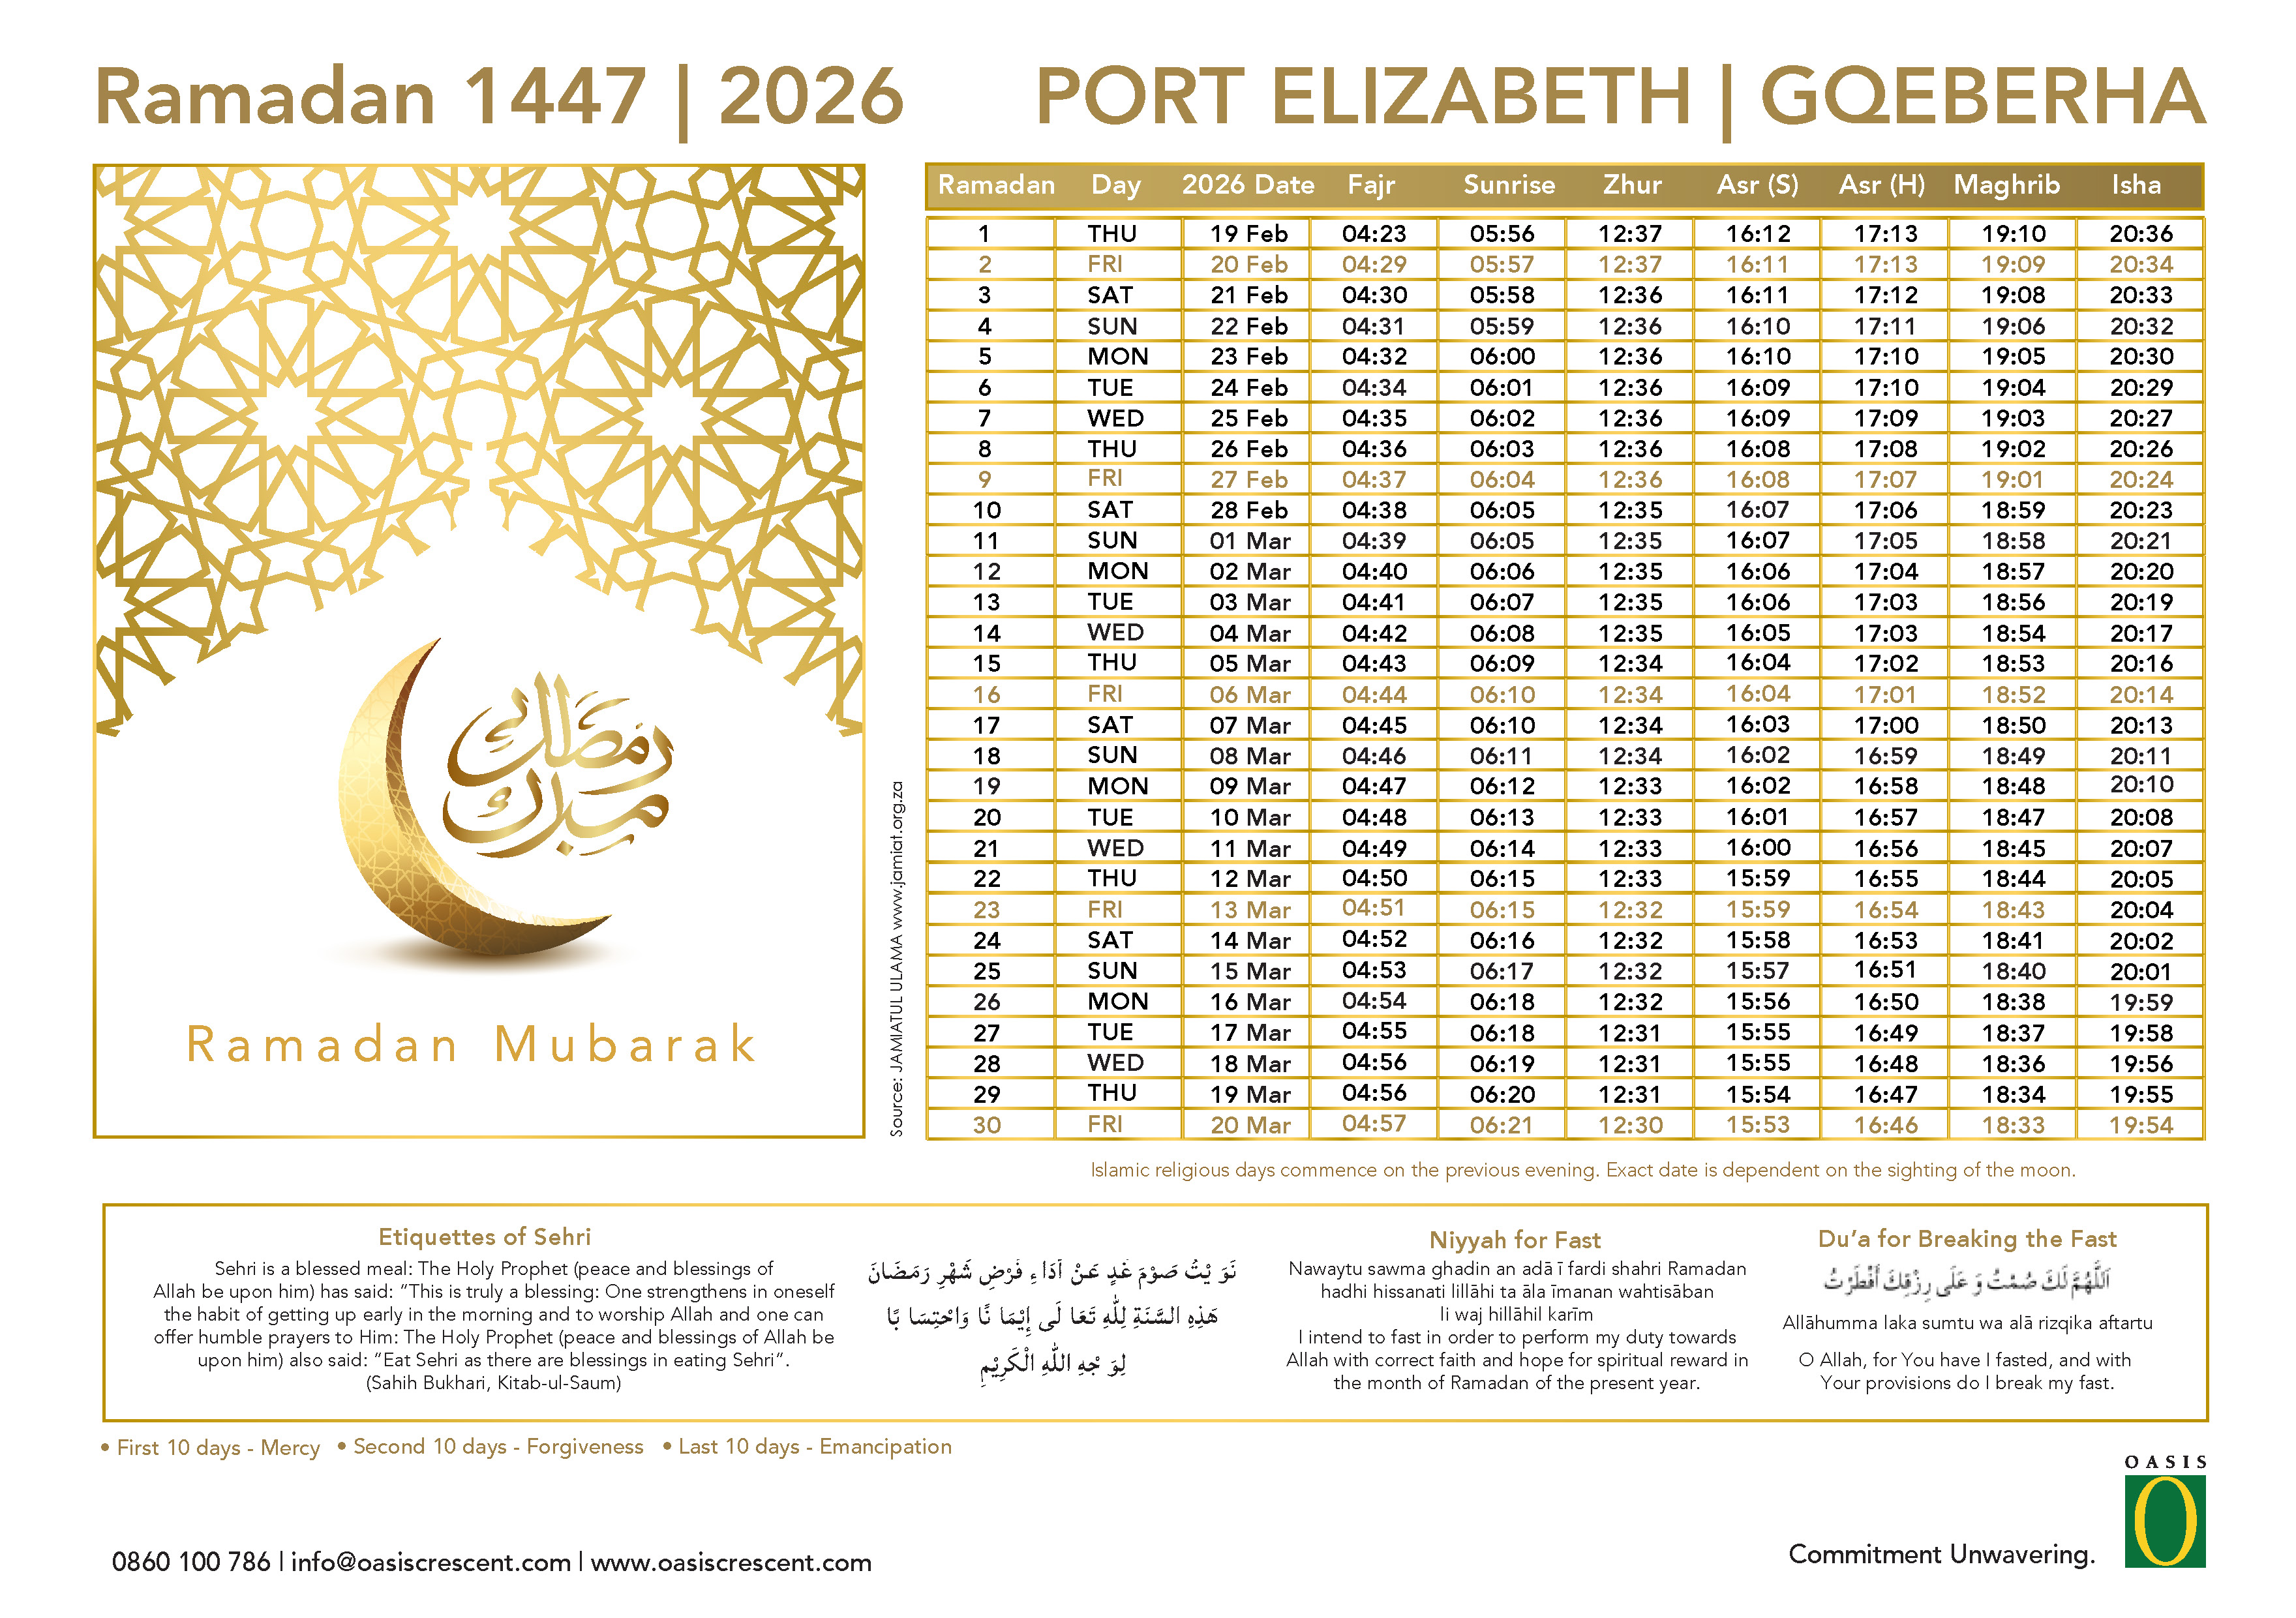 Ramadan 1447 | 2026
PORT ELIZABETH | GQEBERHA
رمضان
مبارك
Ramadan Mubarak
Source: JAMIATUL ULAMA www.jamiat.org.za
Ramadan Day 2026 Date Fajr Sunrise Zhur Asr (S) Asr (H) Maghrib Isha
1 THU 19 Feb 04:23 05:56 12:37 16:12 17:13 19:10 20:36
2 FRI 20 Feb 04:29 05:57 12:37 16:11 17:13 19:09 20:34
3 SAT 21 Feb 04:30 05:58 12:36 16:11 17:12 19:08 20:33
4 SUN 22 Feb 04:31 05:59 12:36 16:10 17:11 19:06 20:32
5 MON 23 Feb 04:32 06:00 12:36 16:10 17:10 19:05 20:30
6 TUE 24 Feb 04:34 06:01 12:36 16:09 17:10 19:04 20:29
7 WED 25 Feb 04:35 06:02 12:36 16:09 17:09 19:03 20:27
8 THU 26 Feb 04:36 06:03 12:36 16:08 17:08 19:02 20:26
9 FRI 27 Feb 04:37 06:04 12:36 16:08 17:07 19:01 20:24
10 SAT 28 Feb 04:38 06:05 12:35 16:07 17:06 18:59 20:23
11 SUN 01 Mar 04:39 06:05 12:35 16:07 17:05 18:58 20:21
12 MON 02 Mar 04:40 06:06 12:35 16:06 17:04 18:57 20:20
13 TUE 03 Mar 04:41 06:07 12:35 16:06 17:03 18:56 20:19
14 WED 04 Mar 04:42 06:08 12:35 16:05 17:03 18:54 20:17
15 THU 05 Mar 04:43 06:09 12:34 16:04 17:02 18:53 20:16
16 FRI 06 Mar 04:44 06:10 12:34 16:04 17:01 18:52 20:14
17 SAT 07 Mar 04:45 06:10 12:34 16:03 17:00 18:50 20:13
18 SUN 08 Mar 04:46 06:11 12:34 16:02 16:59 18:49 20:11
19 MON 09 Mar 04:47 06:12 12:33 16:02 16:58 18:48 20:10
20 TUE 10 Mar 04:48 06:13 12:33 16:01 16:57 18:47 20:08
21 WED 11 Mar 04:49 06:14 12:33 16:00 16:56 18:45 20:07
22 THU 12 Mar 04:50 06:15 12:33 15:59 16:55 18:44 20:05
23 FRI 13 Mar 04:51 06:15 12:32 15:59 16:54 18:43 20:04
24 SAT 14 Mar 04:52 06:16 12:32 15:58 16:53 18:41 20:02
25 SUN 15 Mar 04:53 06:17 12:32 15:57 16:51 18:40 20:01
26 MON 16 Mar 04:54 06:18 12:32 15:56 16:50 18:38 19:59
27 TUE 17 Mar 04:55 06:18 12:31 15:55 16:49 18:37 19:58
28 WED 18 Mar 04:56 06:19 12:31 15:55 16:48 18:36 19:56
29 THU 19 Mar 04:56 06:20 12:31 15:54 16:47 18:34 19:55
30 FRI 20 Mar 04:57 06:21 12:30 15:53 16:46 18:33 19:54
Islamic religious days commence on the previous evening. Exact date is dependent on the sighting of the moon.
Etiquettes of Sehri
Sehri is a blessed meal: The Holy Prophet (peace and blessings of
Allah be upon him) has said: “This is truly a blessing: One strengthens in oneself
the habit of getting up early in the morning and to worship Allah and one can
offer humble prayers to Him: The Holy Prophet (peace and blessings of Allah be
upon him) also said: “Eat Sehri as there are blessings in eating Sehri”.
(Sahih Bukhari, Kitab-ul-Saum)
نَوَ يْتُ صَوْمَ غَدٍ عَنْ اَدَاءِ فَرْضِ شَهْرِ رَمَضَانَ
هَذِهِ السَّنَةِ لِلّٰهِ تَعَا لَى إِيْمَا نًا وَاحْتِسَا بًا
لِوَ جْهِ اللهِ الْكَرِيْمِ
Niyyah for Fast
Nawaytu sawma ghadin an adā ī fardi shahri Ramadan
hadhi hissanati lillāhi ta āla īmanan wahtisāban
li waj hillāhil karīm
I intend to fast in order to perform my duty towards
Allah with correct faith and hope for spiritual reward in
the month of Ramadan of the present year.
Du’a for Breaking the Fast
اَللّٰهُمَّ لَكَ صُمْتُ وَ عَلَى رِزْقِكَ اَفْطَرْتُ
Allāhumma laka sumtu wa alā rizqika aftartu
O Allah, for You have I fasted, and with
Your provisions do I break my fast.
• First 10 days - Mercy • Second 10 days - Forgiveness • Last 10 days - Emancipation
0860 100 786 | info@oasiscrescent.com | www.oasiscrescent.com
Commitment Unwavering.
OASIS